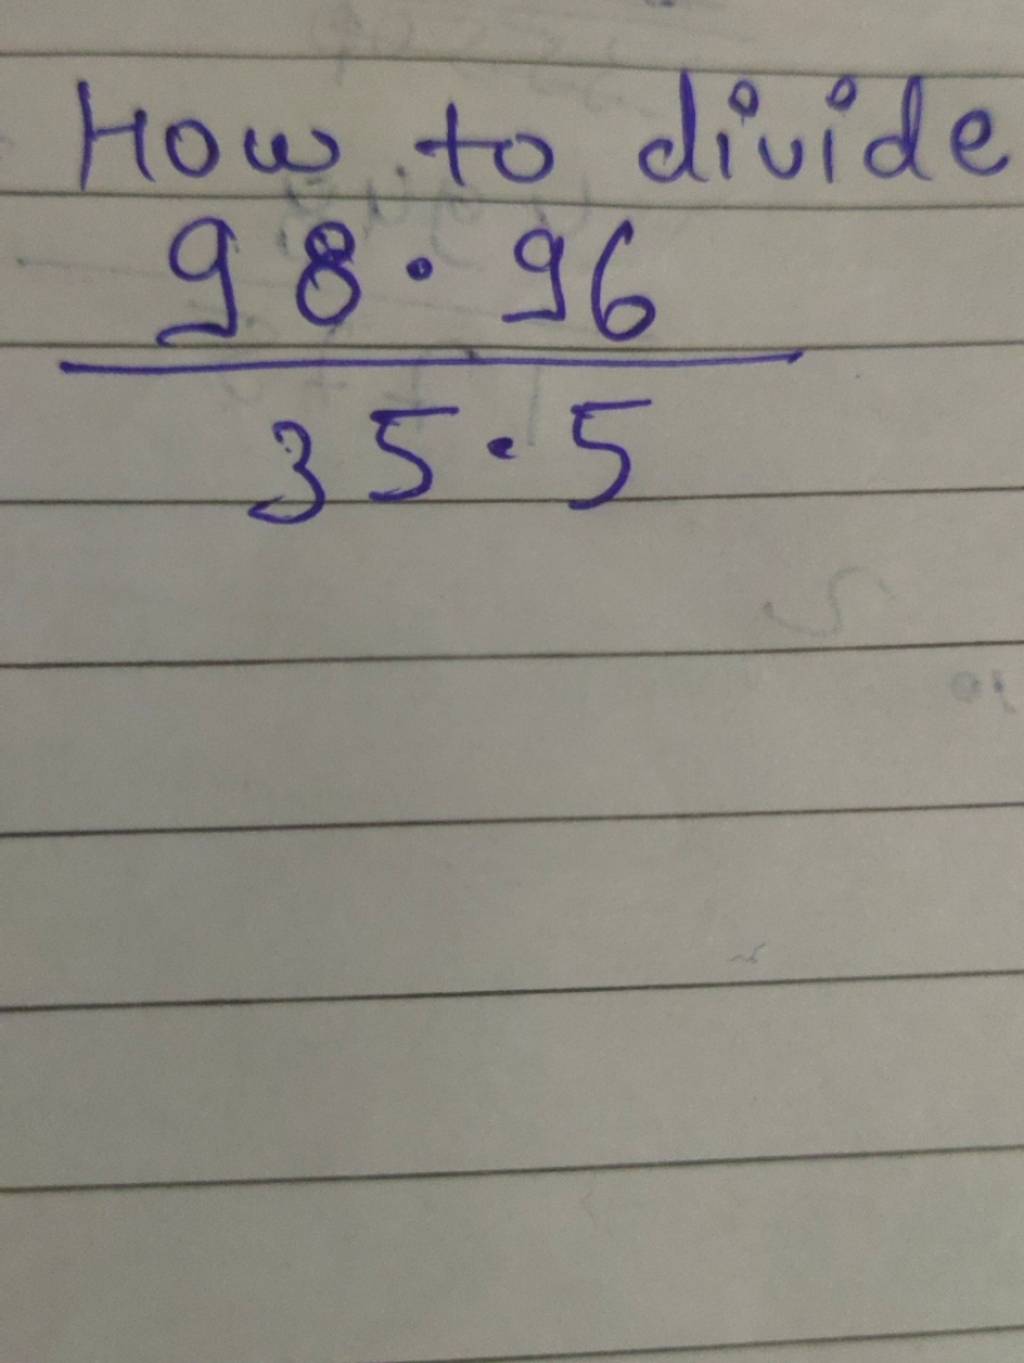 How to divide
98.96
35.5